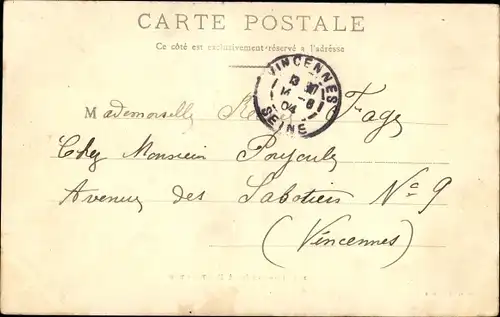 CARTE POSTALE
Ce côté est exclusivement réservé à l'adresse
VINCENNES
13 30
14 - 8
04
SEINE
Mademoiselle Fage
Chez Monsieur
Avenue des Sabotiers No 9
(Vincennes)